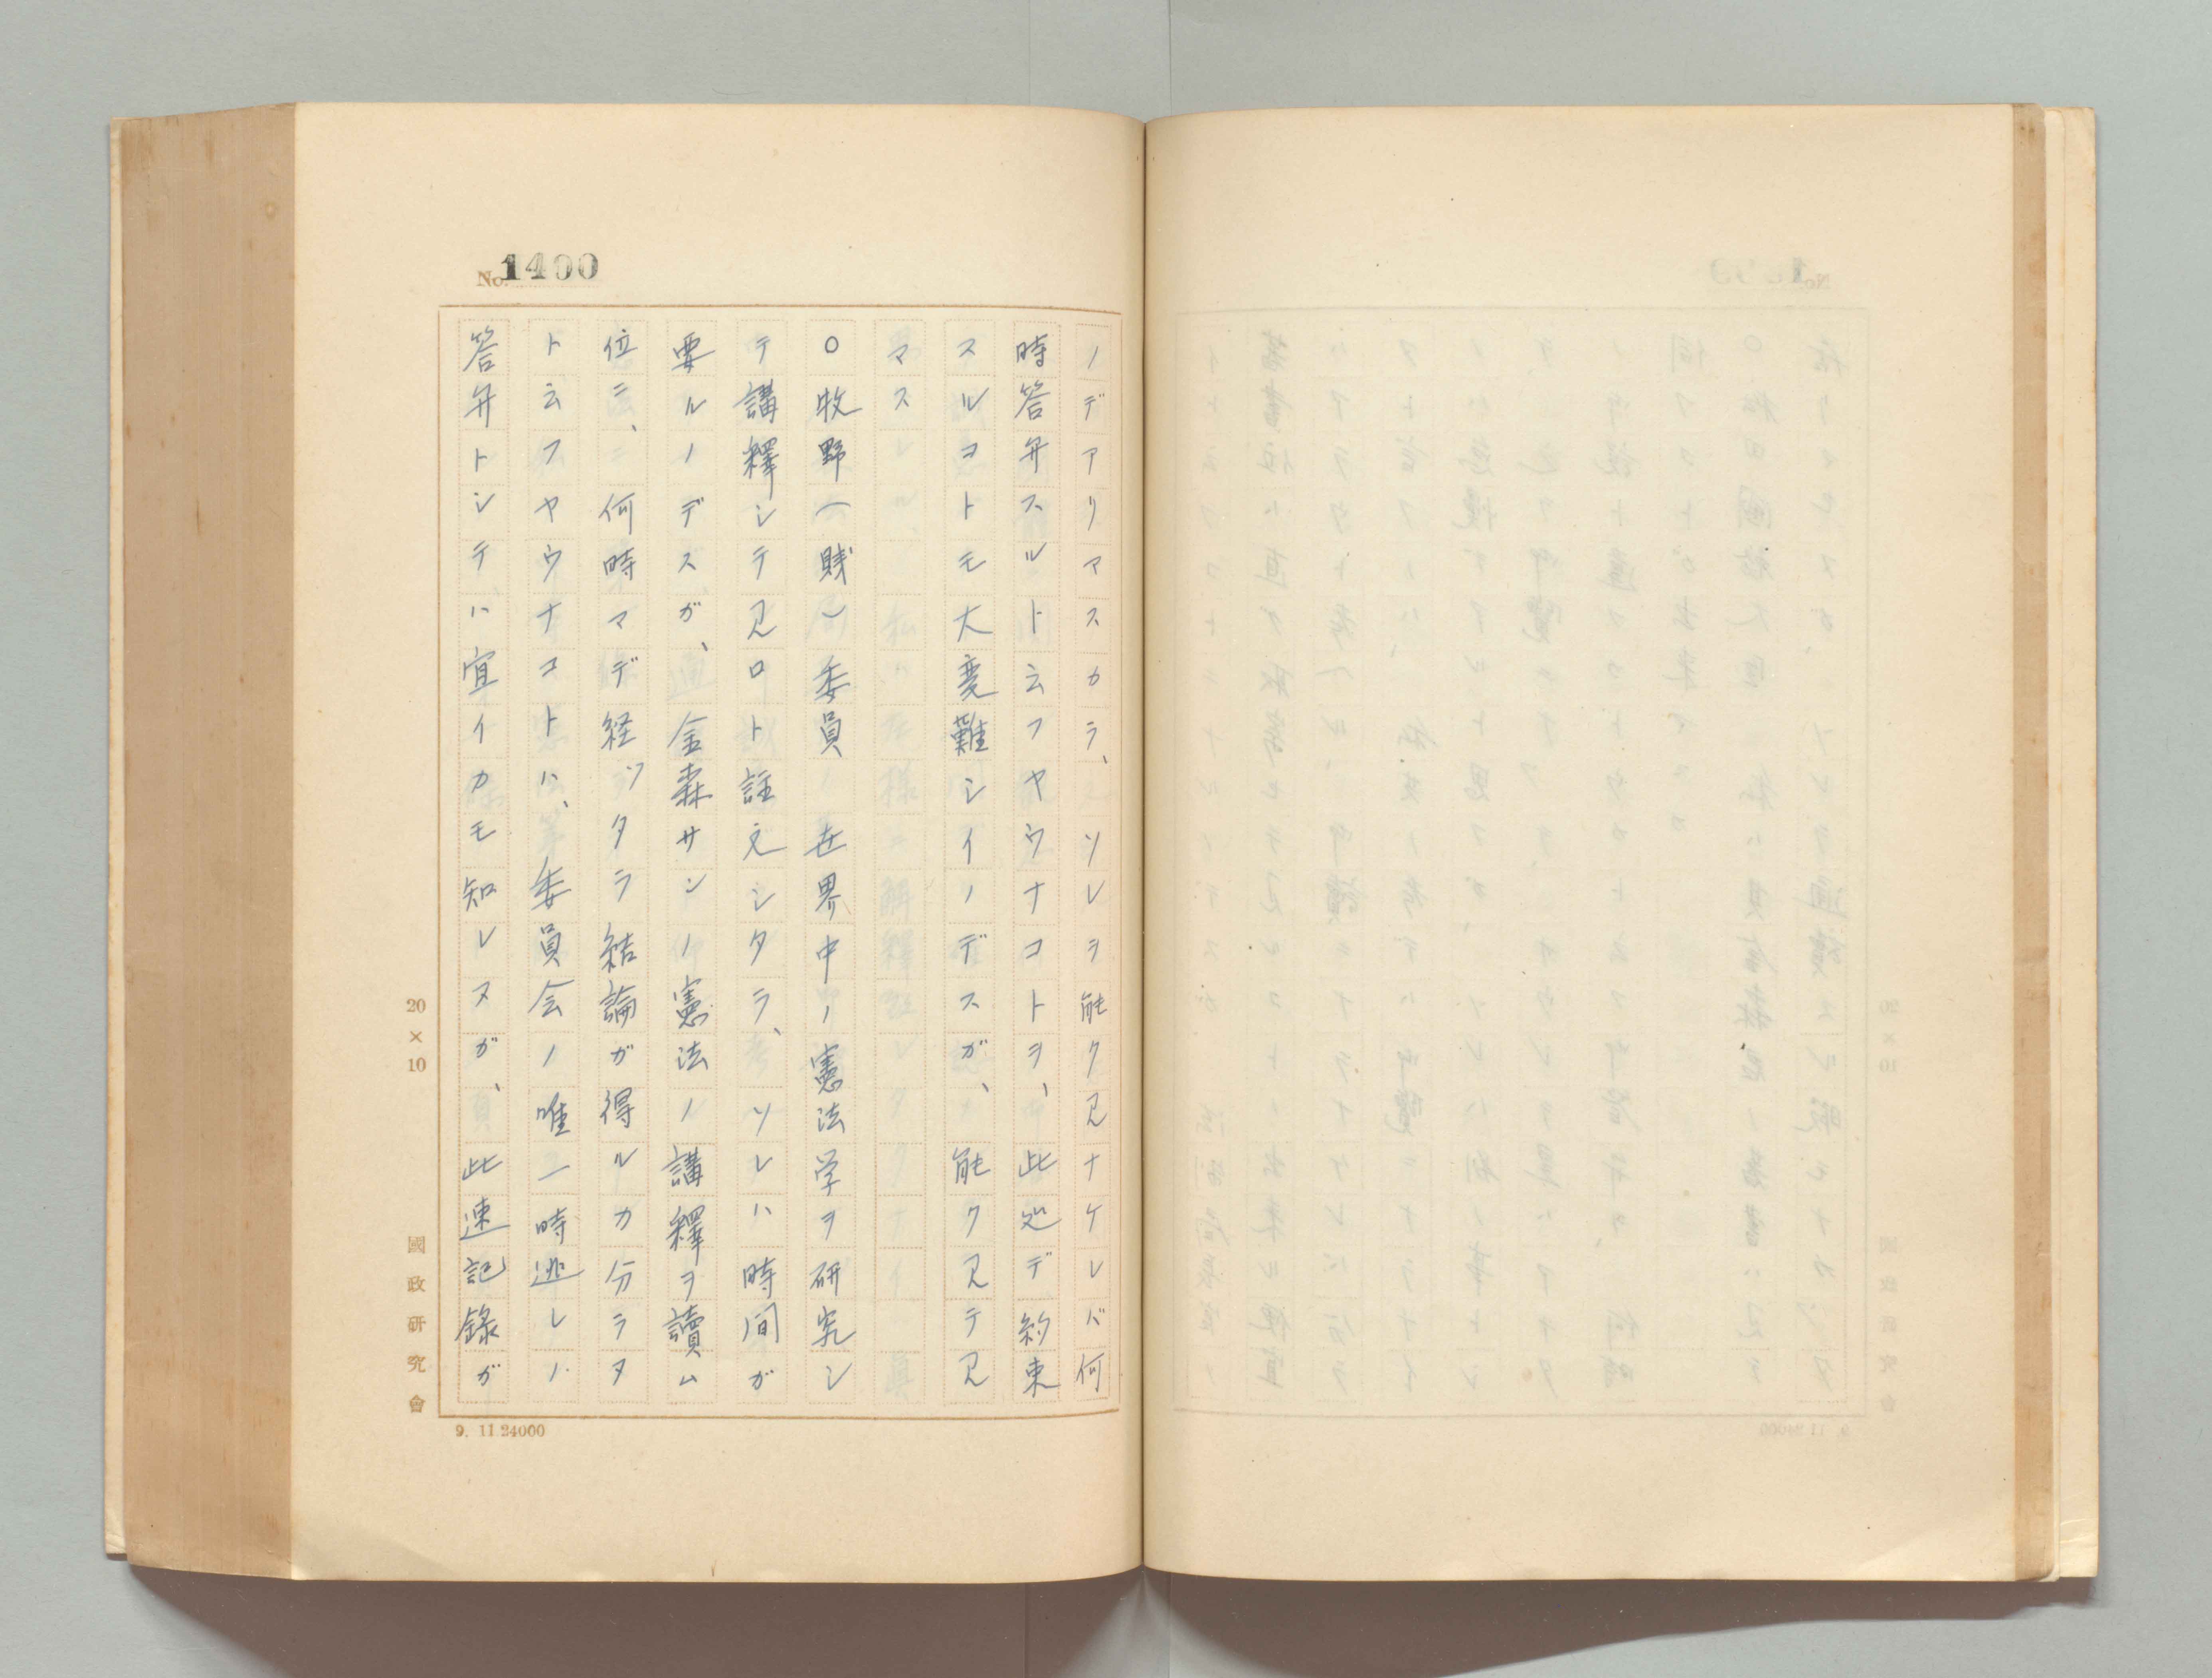 No. 1400
ノデアリマスカラ、ソレヲ能ク見ナケレバ何
時答弁スルト云フヤウナコトヲ、此処デ約束
スルコトモ大変難シイノデスガ、能ク見テ見
マス
○牧野(賎)委員 世界中ノ憲法学ヲ研究シ
テ講釋シテ見ロト註文シタラ、ソレハ時間ガ
要ルノデスガ、金森サンノ憲法ノ講釋ヲ讀ム
位ニ、何時マデ経ツタラ結論ガ得ルカ分ラヌ
ト云フヤウナコトハ、委員会ノ唯一時逃レノ
答弁トシテハ宜イカモ知レヌガ、此速記録ガ
20×10
國政研究會
9. 11.24000